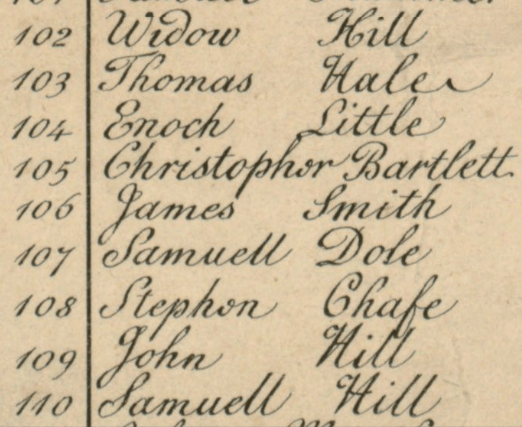 102 Widow Hill
103 Thomas Hale
104 Enoch Little
105 Christophor Bartlett
106 James Smith
107 Samuell Dole
108 Stephon Chafe
109 John Hill
110 Samuell Hill